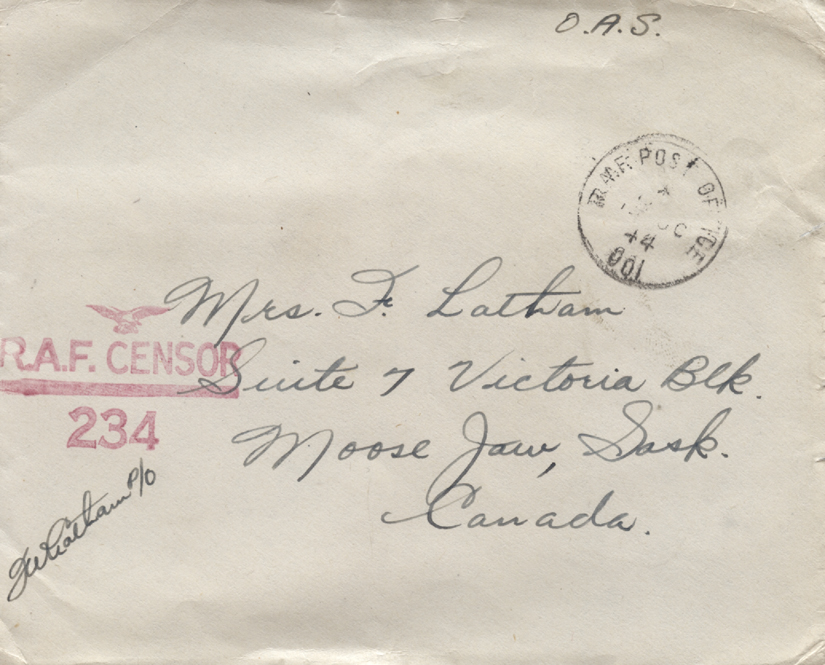 O.A.S.
R.A.F. POST OFFICE
44
001
Mrs. F. Latham
R.A.F. CENSOR
Suite 7 Victoria Blk.
234
Moose Jaw, Sask.
Canada.
Latham P/O